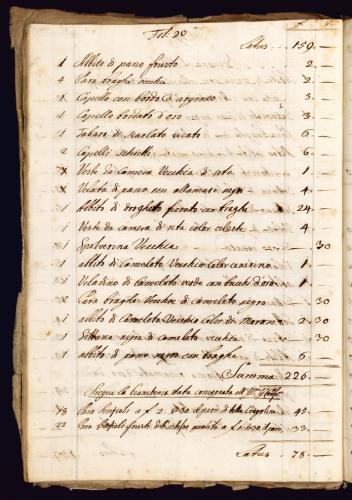 Fol: 20
Latus 159.—
1 Abito di pano frusto 2.—
4 Para braghe vecchie 2.—
1 Capello con bordo d'argento 3.—
1 Capello bordato d'oro 3.—
1 Tabaro di scarlato usato 6.—
2 Capelli schietti 6.—
Veste da camera Vecchia di seta 1.—
Velata di pano con alamari negri 4.—
1 Abito di droghetto fiorato con braghe 24.—
1 Veste da camera di seta color celeste 4.—
1 Spolverina Vecchia —30
1 abito di camelato Vecchio Color cenerino 1.—
1 Veladino di camelato verde con buchi d'oro 1.—
2 Para braghe Vecchie di camelato negro —30
1 abito di Camelato Vecchio Color di Maron 2.30
1 Sottana negra di camelato vecchia —30
1 abito di pano negro con braghe 6.—
Summa 226.—
Segue la biancheria stata consegnata
18 Para lenzuoli a f 2.30 il paro di tella 45.—
22 Para frusti a f 1.30 il paro 33.—
Latus 78.—